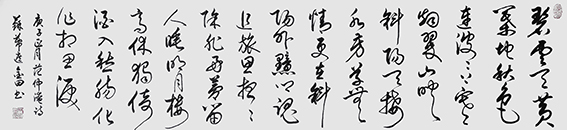 碧雲天黄
葉地秋色
連波〻上寒
烟翠山映
斜陽天接
水芳草無
情更在斜
陽外黯鄉魂
追旅思夜〻
除非好夢留
人睡明月樓
高休獨倚
酒入愁腸化
作相思淚
庚子正月范仲淹詞
蘇幕遮金田书